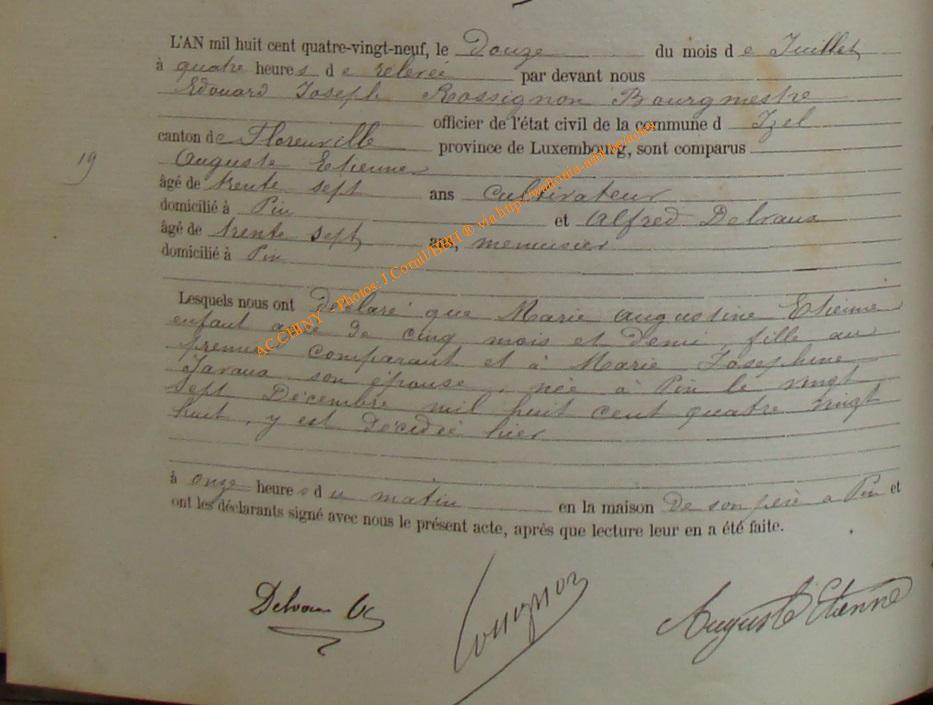 L'AN mil huit cent quatre-vingt-neuf, le Douze du mois de Juillet
à quatre heures de relevée par devant nous
Edouard Joseph Rossignon Bourgmestre
officier de l'état civil de la commune d Izel
canton de Florenville province de Luxembourg, sont comparus
19
Auguste Etienne
âgé de trente sept ans cultivateur
domicilié à Pin et Alfred Delvaux
âgé de trente sept ans, menuisier
domicilié à Pin
Lesquels nous ont déclaré que Marie Augustine Etienne
enfant âgée de cinq mois et demi, fille au
premier comparant et à Marie Josephine
Javaux son épouse, née à Pin le vingt
sept Décembre mil huit cent quatre vingt
huit, y est décédée hier
à onze heures du matin en la maison de son père à Pin et
ont les déclarants signé avec nous le présent acte, après que lecture leur en a été faite.
Delvaux Rossignon Auguste Etienne
ACCHINY - Photos: J Cornil/BBH ® via http://wallonia-